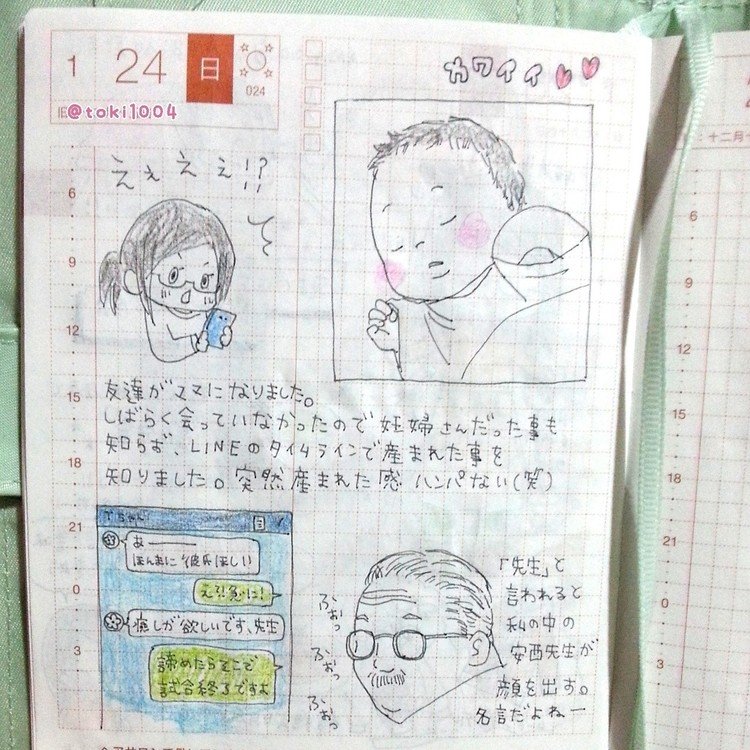 1 24 日
024
@toki1004
カワイイ
えぇぇぇ!?!
友達がママになりました。
しばらく会っていなかったので妊婦さんだった事も
知らず、LINEのタイムラインで産まれた事を
知りました。突然産まれた感ハンパない(笑)
6
9
12
15
18
21
0
3
Tちゃん
あ———
ほんまに彼氏ほしい
えっ!急に!
癒しが欲しいです、先生
諦めたらそこで
試合終了ですよ
ふぉっ
ふぉっ
ふぉっ
「先生」と
言われると
私の中の
安西先生が
顔を出す。
名言だよねー
十二月
6
9
12
15
18
21
0
3